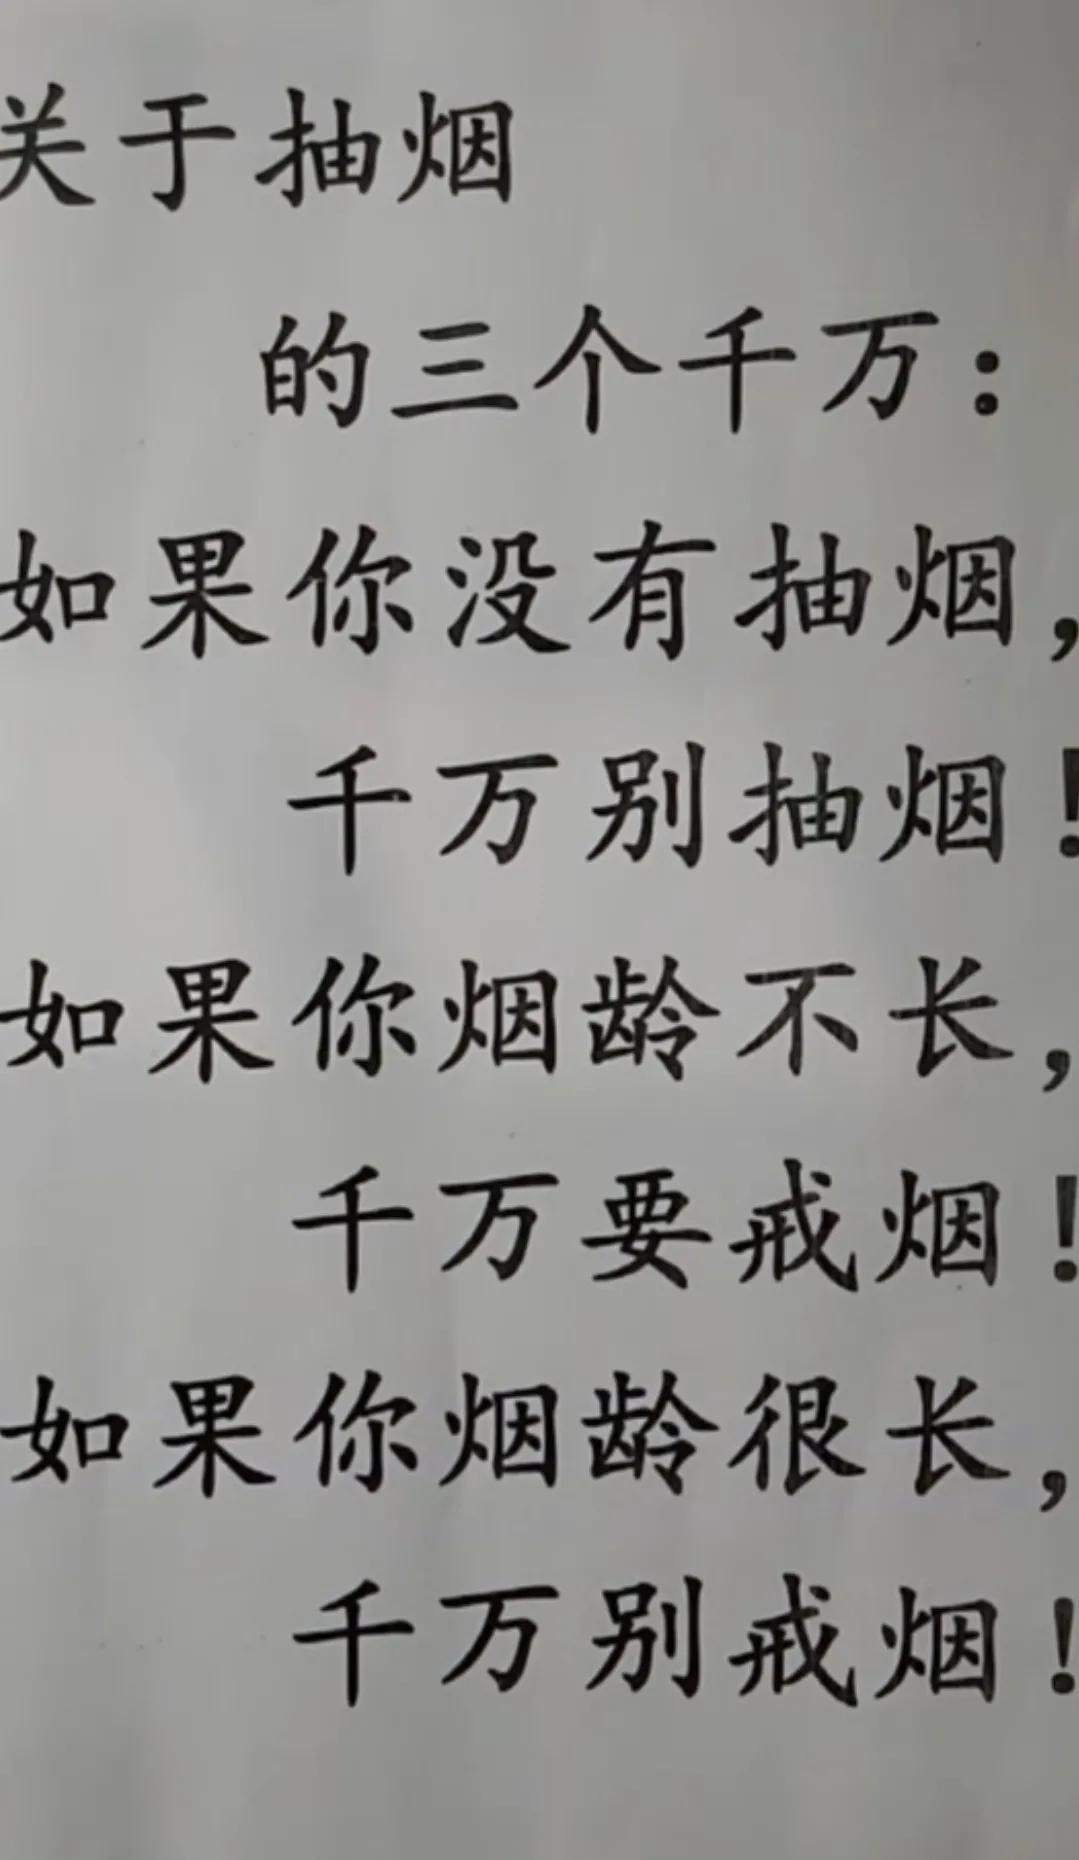 关于抽烟
的三个千万：
如果你没有抽烟，
千万别抽烟！
如果你烟龄不长，
千万要戒烟！
如果你烟龄很长，
千万别戒烟！